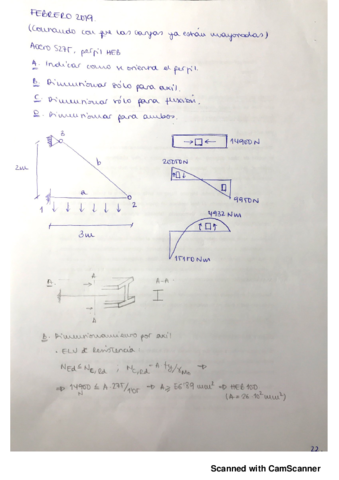 FEBRERO 2019
(Contando con que las cargas ya están mayoradas)
Acero S275, perfil HEB
A. Indicar como se orienta el perfil.
B. Dimensionar sólo para axil.
C. Dimensionar sólo para flexión.
D. Dimensionar para ambos.
3
2m
b
a
1
2
3m
14950N
20050N
9950N
4932 Nm
15150 Nm
A.
A
A-A
A
B. Dimensionamiento por axil
ELU de resistencia
22
Scanned with CamScanner